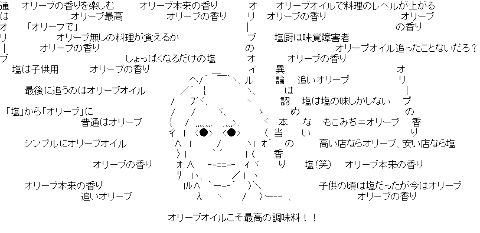 通　オリーブの香りを楽しむ　　オリーブ本来の香り　　オ　オリーブオイルで料理のレベルが上がる
は　　　　　オリーブ最高　　　　オリーブの香り　　　リ　　オリーブの香り　　　　　オリーブの香り
オ　　「オリーブで」　　　　　　　　　　　　　　　　｜　　　　　　　　　　　　　　の香り
リ　　　　オリーブ無しの料理が食えるか　　　　　　　ブ　　塩厨は味覚障害者
｜　　　オリーブの香り　　　　　　　　　　　　　　　の　　　　　　　オリーブオイル追ったことないだろ？
ブ　　　　　　　　　しょっぱくなるだけの塩　　　　　オ　　オリーブの香り
　塩は子供用　　　オリーブの香り　　　　　　　　　　イ　異　　　　　　　　　　オ
　　　　　　　　　　　　　　　　　　　　　　　　　　ル　論　追いオリーブ　　　リ
　　最後に追うのはオリーブオイル　　　　　　　　　　　　は　　　　　　　　　　｜
　　　　　　　　　　　　　　　　　　　　　　　　　　　　認　塩は塩の味しかしない　ブ
「塩」から「オリーブ」に　　　　　　　　　　　　　　　　め　　　　　　　　　　の
　　　　　　　普通はオリーブ　　　　　　　　　　　　本　な　もこみち＝オリーブ　香
　　　　　　　　　　　　　　　　　　　　　　　　　　当　い　　　　　　　　　　り
　　シンプルにオリーブオイル　　　　　　　　　　　　の　　　高い店ならオリーブ、安い店なら塩
　　　　　　　　　　　　　　　　　　　　　　　　　　香
　　　　　　　オリーブの香り　　　　　　　　　　　　り　塩（笑）　オリーブ本来の香り
　　オリーブ本来の香り　　　　　　　　　　　　　　　　　　子供の頃は塩だったが今はオリーブ
　　　　　　　追いオリーブ　　　　　　　　　　　　　　　　　　　　オリーブの香り
オリーブオイルこそ最高の調味料！！